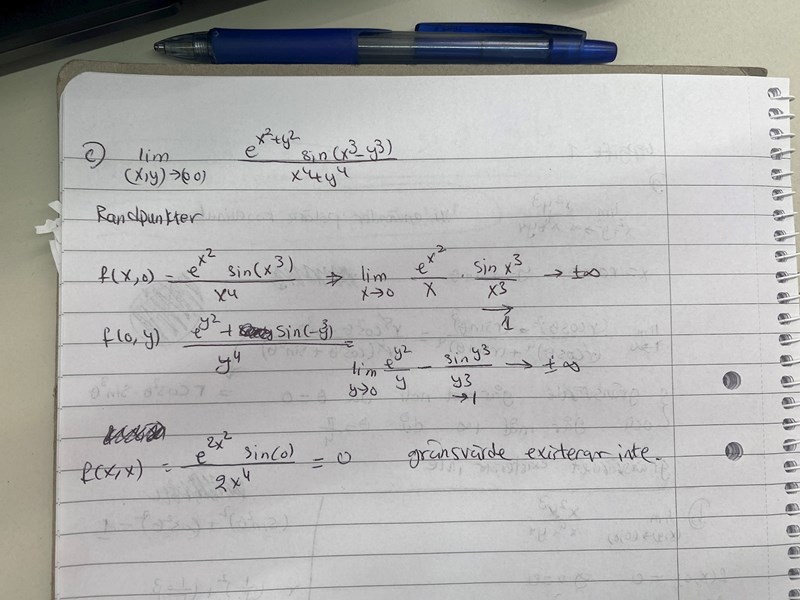 c) lim (x,y)→(0,0) e^{x²+y²} sin(x³-y³) / x⁴+y⁴
Randpunkter
f(x,0) = e^{x²} sin(x³) / x⁴ ⇒ lim x→0 e^{x²}/x · sin x³/x³ → ±∞
→ 1
f(0,y) e^{y²} + sin(-y³) / y⁴ =
lim y→0 e^{y²}/y - sin y³/y³ → ±∞
→ 1
f(x,x) = e^{2x²} sin(0) / 2x⁴ = 0 gränsvärde existerar inte.